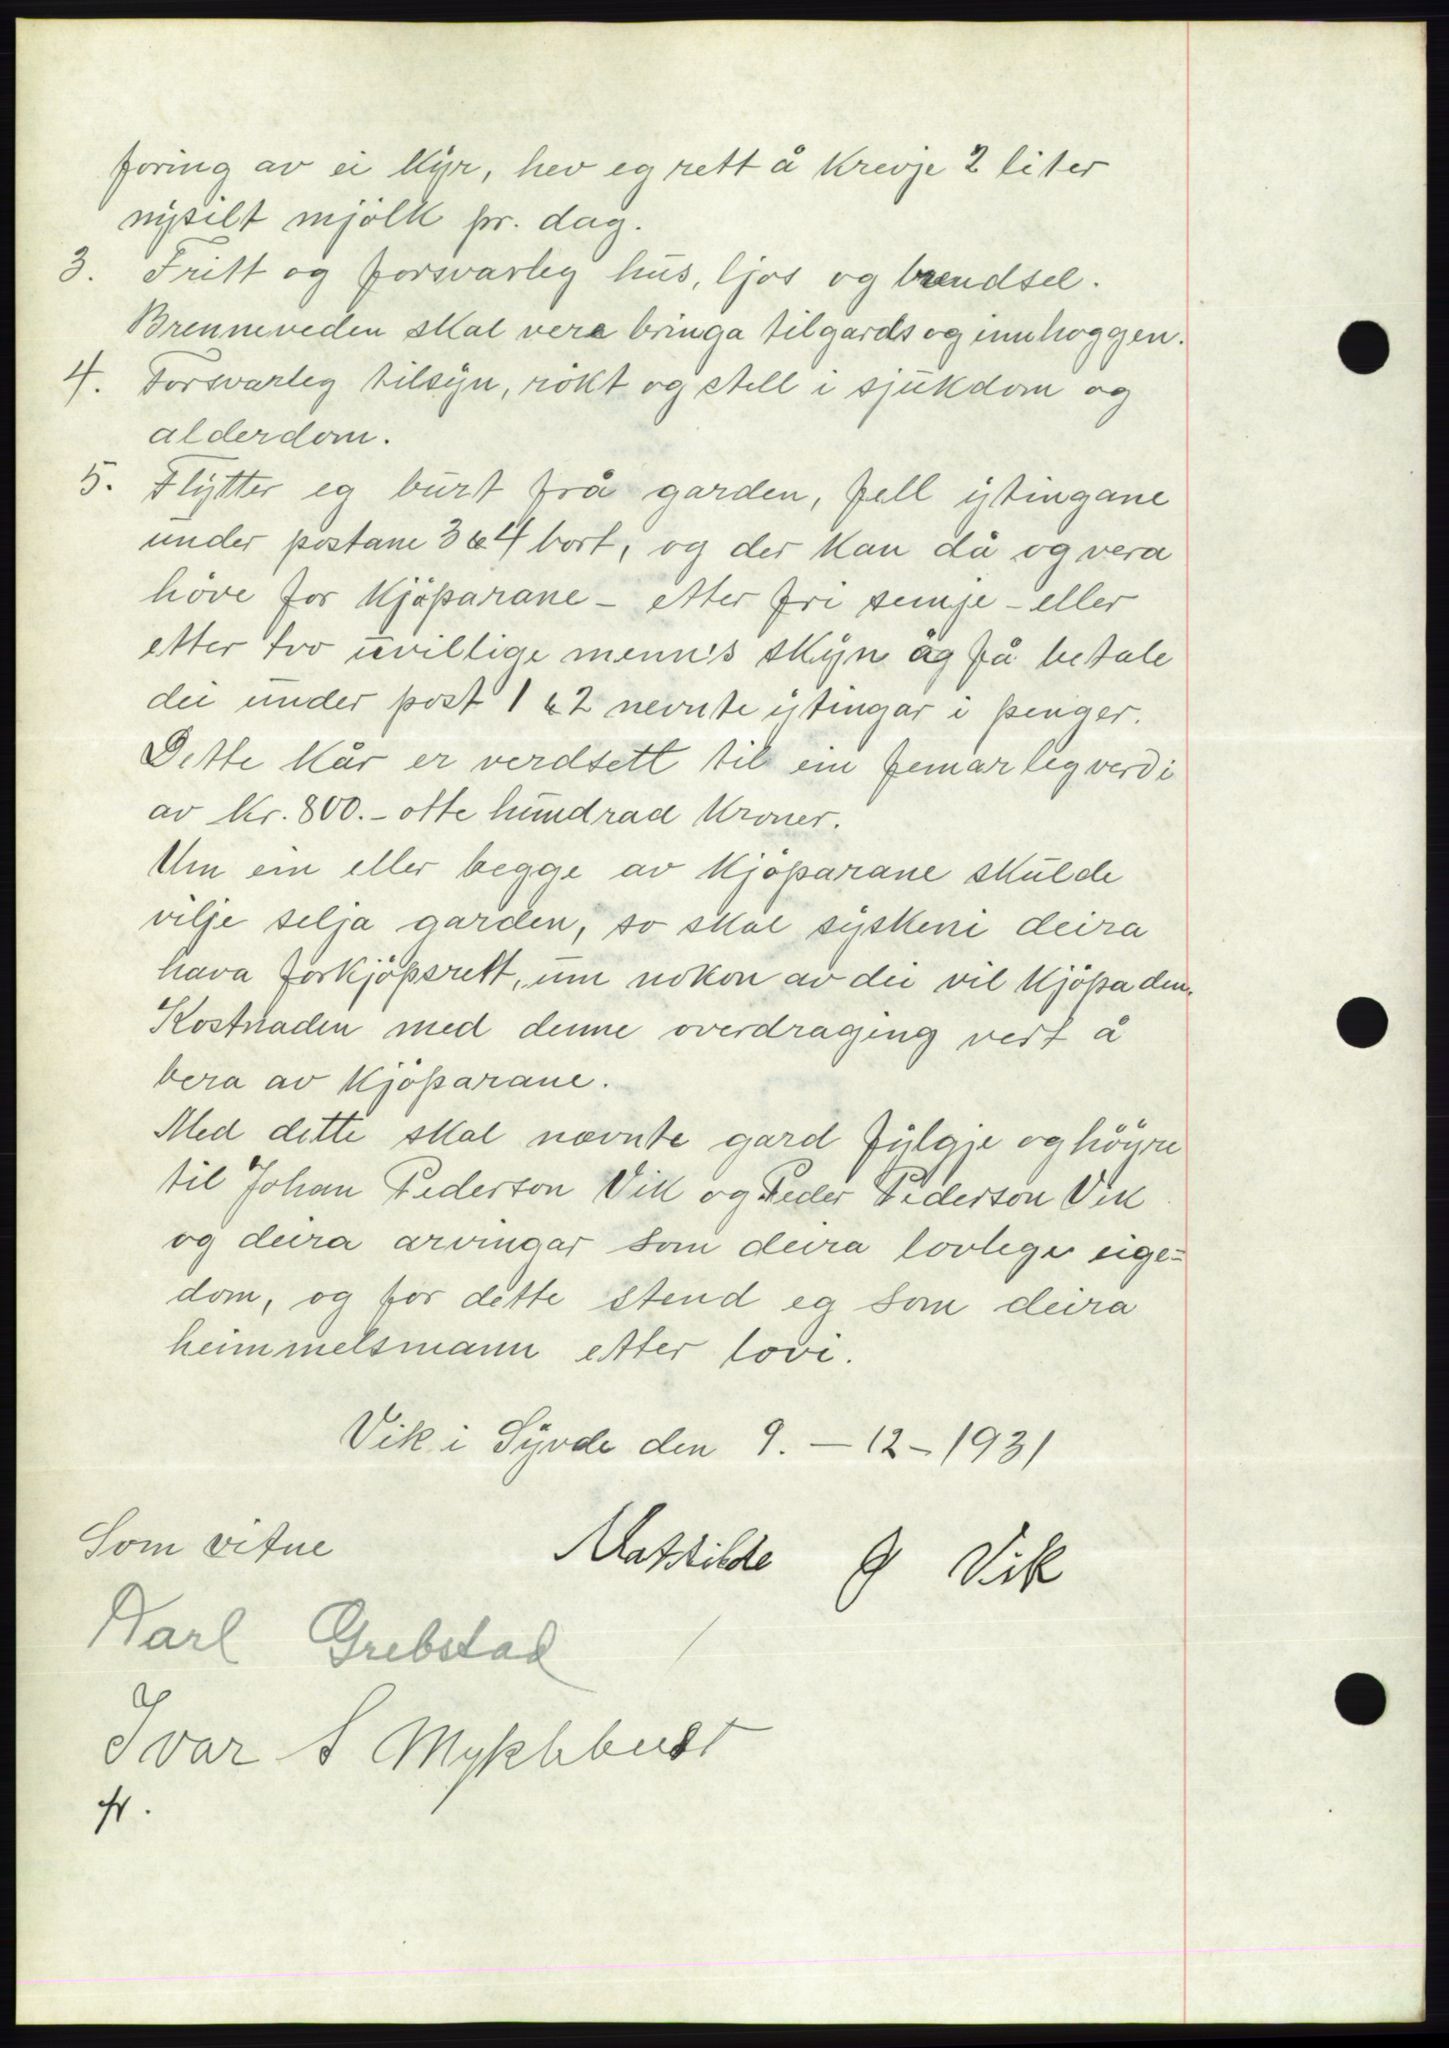 foring av ei kýr, hev eg rett å krevje 2 liter
nysilt mjölk pr. dag.
3. Fritt og forsvarleg hus, ljos og brendsel.
Brenneveden skal vera bringa tilgards og innhoggen.
4. Forsvarleg tilsyn, rökt og stell i sjukdom og
alderdom.
5. Flytter eg burt frå garden, fell ytingane
under postane 3 & 4 bort, og der kan då og vera
höve for kjöparane - etter fri semje - eller
etter tvo uvillige menn's skyn åg få betale
dei under post 1 & 2 nevnte ytingar i penger.
Dette kår er verdsett til ein femårlegverdi
av kr. 800.- otte hundrad kroner.
Um ein eller begge av kjöparane skulde
vilje selja garden, so skal syskeni deira
hava forkjöpsrett, um nokon av dei vil kjöpa den.
Kostnaden med denne overdraging vert å
bera av kjöparane.
Med dette skal nævnte gard fylgje og höyre
til Johan Pederson Vik og Peder Pederson Vik
og deira arvingar som deira lovlege eige=
dom, og for dette stend eg som deira
heimmelsmann etter lovi.
Vik i Syvde den 9. - 12 - 1931
Som vitne
Mathilde J Vik
Karl Grebstad
Ivar S Myklebust